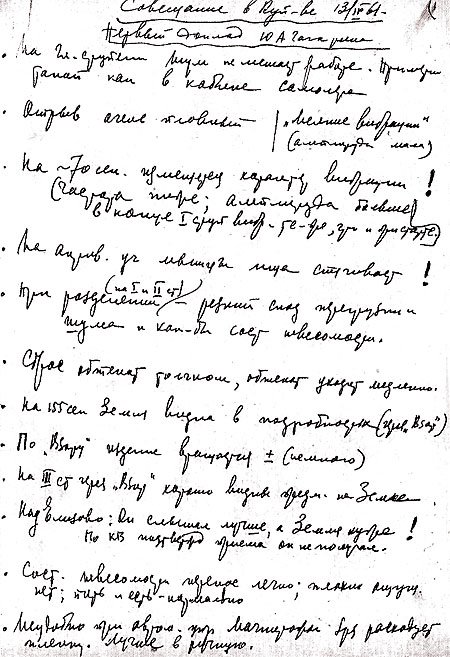 Совещание в Куй-ве 13/IV 61.
Первый доклад Ю А Гагарина
• На гл. участке шум не мешает работе. Примерно
такой как в кабине самолета
• Отрыв очень плавный | "Мелкие вибрации"
(амплитуда мала)
• На ~70 сек. изменяется характер вибрации !
(Частота шире; амплитуда больше)
в конце I ступ вибр.
• На актив. уч мышцы лица стягивает !
• При разделении (на I и II ст) – резкий спад перегрузки и
шума и как-бы сост невесомости.
• Сброс обтекат толчком, обтекат уходит медленно.
• На 155 сек Земля видна в подробностях (через "Взор")
• По "Взору" изделие вращается ± (немного)
• На III ст через "Взор" хорошо видны на Земле
• Над Елизово: Он слышал лучше, а Земля хуже !
По КВ подтвержд приема он не получал.
• Сост. невесомости перенес легко; плохих ощущ.
нет; пить и есть – нормально
• Неудобно при автом. упр магнитофон зря расходует
пленку. Лучше в ручную.